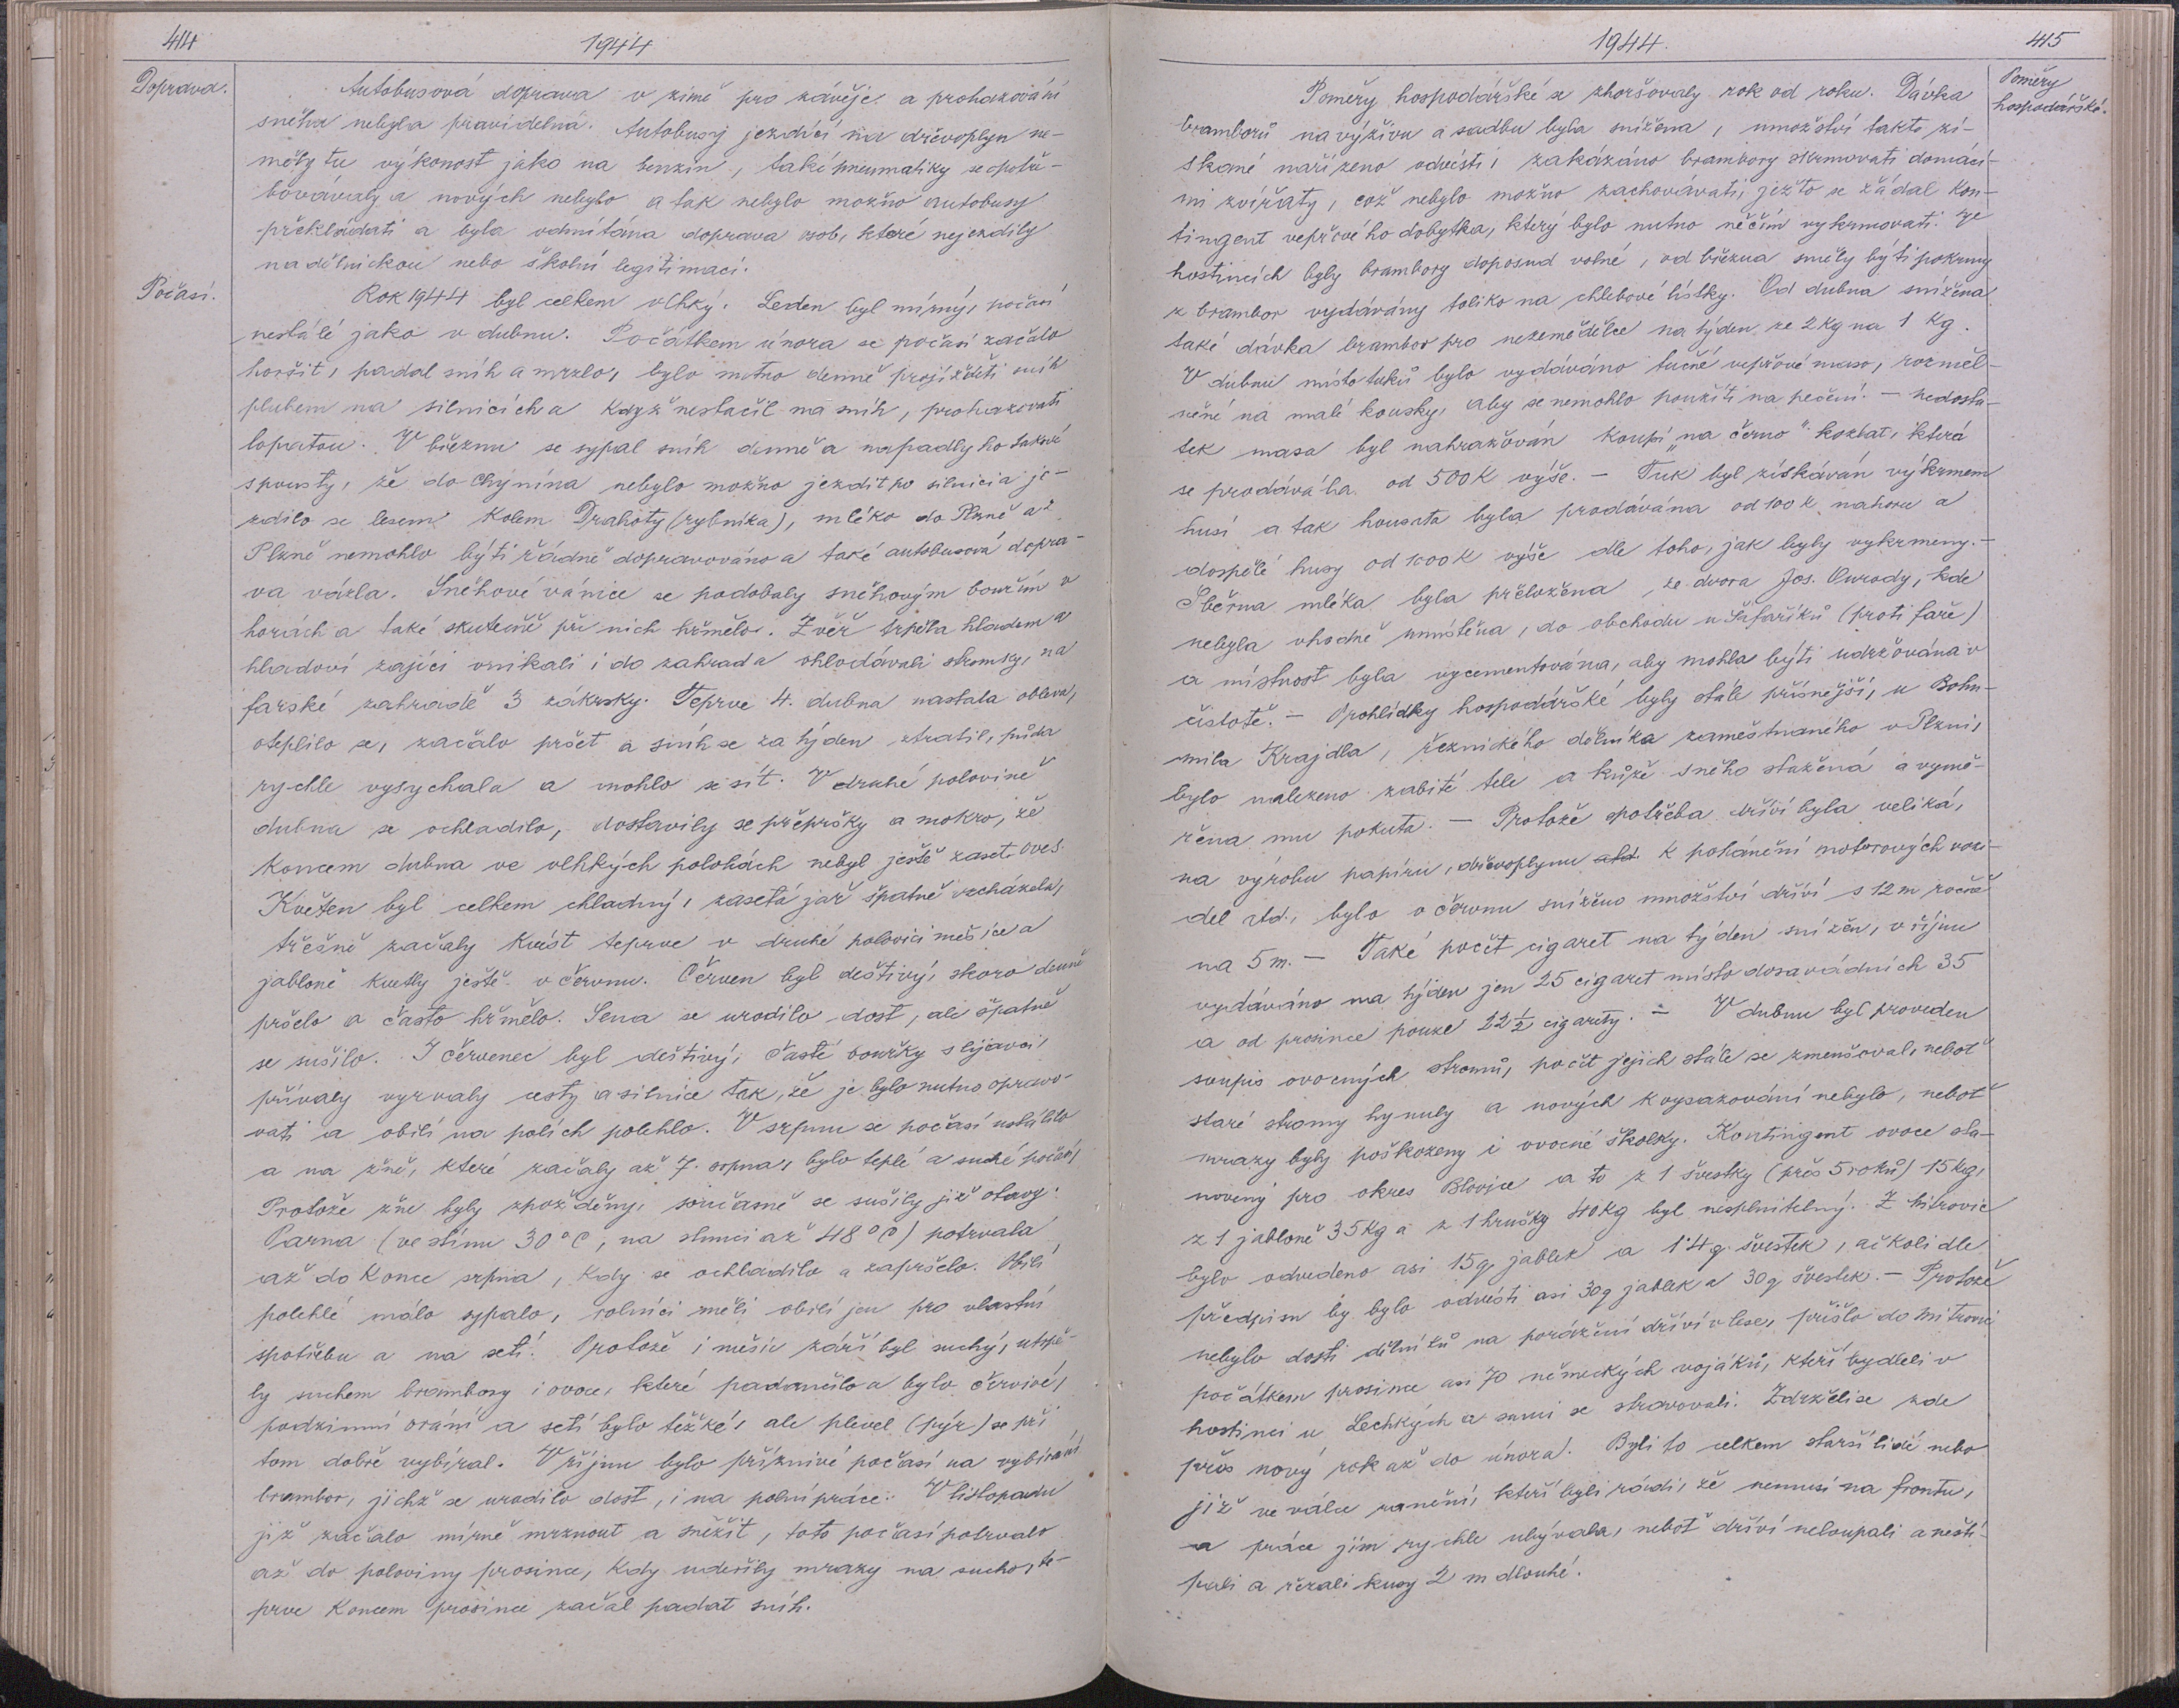 414
1944
Doprava.
Autobusová doprava v zimě pro závěje a prohazování
sněhu nebyla pravidelná. Autobusy jezdící na dřevoplyn ne-
měly tu výkonost jako na benzin, také pneumatiky se opotře-
bovávaly a nových nebylo a tak nebylo možno autobusy
překládati a byla odmítána doprava osob, které nejezdily
na dělnickou nebo školní legitimaci.
Počasí.
Rok 1944 byl celkem vlhký. Leden byl mírný, počasí
nestálé jako v dubnu. Počátkem února se počasí začalo
horšit, padal sníh a mrzlo, bylo nutno denně projížděti sníh
pluhem na silnicích a když nestačil na sníh, prohazovati
lopatou. V březnu se sypal sníh denně a napadly ho takové
spousty, že do Chýnína nebylo možno jezdit po silnici a je-
zdilo se lesem kolem Drahoty (rybníka), mléko do Plzně a z
Plzně nemohlo býti řádně dopravováno a také autobusová dopra-
va vázla. Sněhové vánice se podobaly sněhovým bouřím v
horách a také skutečně při nich hřmělo. Zvěř trpěla hladem a
hladoví zajíci vnikali i do zahrad a ohlodávali stromky, na
farské zahradě 3 zákrsky. Teprve 4. dubna nastala obleva,
oteplilo se, začalo pršet a sníh se za týden ztratil, půda
rychle vysychala a mohlo se sít. V druhé polovině
dubna se ochladilo, dostavily se přepršky a mokro, že
koncem dubna ve vlhkých polohách nebyl ještě zaset oves.
Květen byl celkem chladný, zasetá jař špatně vzcházela,
třešně začaly kvést teprve v druhé polovici měsíce a
jabloně kvetly ještě v červnu. Červen byl deštivý, skoro denně
pršelo a často hřmělo. Sena se urodilo dost, ale špatně
se sušilo. I červenec byl deštivý, časté bouřky s lijavci,
přívaly vyrvaly cesty a silnice tak, že je bylo nutno opravo-
vati a obilí na polích polehlo. V srpnu se počasí ustálilo
a na žně, které začaly až 7. srpna, bylo teplé a suché počasí,
Protože žně byly zpožděny, současně se sušily již otavy.
Parna (ve stínu 30°C, na slunci až 48°C) potrvala
až do konce srpna, kdy se ochladilo a zapršelo. Obilí
polehlé málo sypalo, rolníci měli obilí jen pro vlastní
spotřebu a na setí. Protože i měsíc září byl suchý, utrpě-
ly suchem brambory i ovoce, které padančilo a bylo červivé,
podzimní orání a setí bylo těžké, ale plevel (pýr) se při
tom dobře vybíral. V říjnu bylo příznivé počasí na vybírání
brambor, jichž se urodilo dost, i na polní práce. V listopadu
již začalo mírně mrznout a sněžit, toto počasí potrvalo
až do poloviny prosince, kdy udeřily mrazy na sucho, te-
prve koncem prosince začal padat sníh.
1944.
415
Poměry
hospodářské.
Poměry hospodářské se zhoršovaly rok od roku. Dávka
bramborů na výživu a sadbu byla snížena, množství takto zí-
skané nařízeno odvésti, zakázáno brambory zkrmovati domácí-
mi zvířaty, což nebylo možno zachovávati, ježto se žádal kon-
tingent vepřového dobytka, který bylo nutno něčím vykrmovati. Ve
hostincích byly brambory doposud volné, od března směly býti pokrmy
z brambor vydávány toliko na chlebové lístky. Od dubna snížena
také dávka brambor pro nezemědělce na týden ze 2 kg na 1 kg.
V dubnu místo tuků bylo vydáváno tučné vepřové maso, rozměl-
něné na malé kousky, aby se nemohlo použíti na pečení. – Nedosta-
tek masa byl nahražován koupí „na černo" kozlat, která
se prodávala od 500 K výše. – Tuk byl získáván výkrmem
husí a tak housata byla prodávána od 100 K nahoru a
dospělé husy od 1000 K výše dle toho, jak byly vykrmeny. –
Sběrna mléka byla přeložena, ze dvora Jos. Ourody, kde
nebyla vhodně umístěna, do obchodu u Šafaříků (proti faře)
a místnost byla vycementována, aby mohla býti udržována v
čistotě. – Prohlídky hospodářské byly stále přísnější, u Bohu-
mila Krajdla, řeznického dělníka zaměstnaného v Plzni,
bylo nalezeno zabité tele a kůže s něho stažená a vymě-
řena mu pokuta. – Protože spotřeba dříví byla veliká,
na výrobu papíru, dřevoplynu atd. k pohánění motorových vozi-
del atd., bylo v červnu sníženo množství dříví s 12 m ročně
na 5 m. – Také počet cigaret na týden snížen, v říjnu
vydáváno na týden jen 25 cigaret místo dosavadních 35
a od prosince pouze 22½ cigarety. – V dubnu byl proveden
soupis ovocných stromů, počet jejich stále se zmenšoval, neboť
staré stromy hynuly a nových k vysazování nebylo, neboť
mrazy byly poškozeny i ovocné školky. Kontingent ovoce sta-
novený pro okres Blovice a to z 1 švestky (přes 5 roků) 15 kg,
z 1 jabloně 35 kg a z 1 hrušky 40 kg byl nesplnitelný. Z Mitrovic
bylo odvedeno asi 15 q jablek a 1·4 q švestek, ačkoli dle
předpisu by bylo odvésti asi 30 q jablek a 30 q švestek. – Protože
nebylo dosti dělníků na porážení dříví v lese, přišlo do Mitrovic
počátkem prosince asi 70 německých vojáků, kteří bydleli v
hostinci u Lechkých a sami se stravovali. Zdrželi se zde
přes nový rok až do února. Byli to celkem starší lidé nebo
již ve válce ranění, kteří byli rádi, že nemusí na frontu,
a práce jim rychle ubývala, neboť dříví neloupali a neští-
pali a řezali kusy 2 m dlouhé.